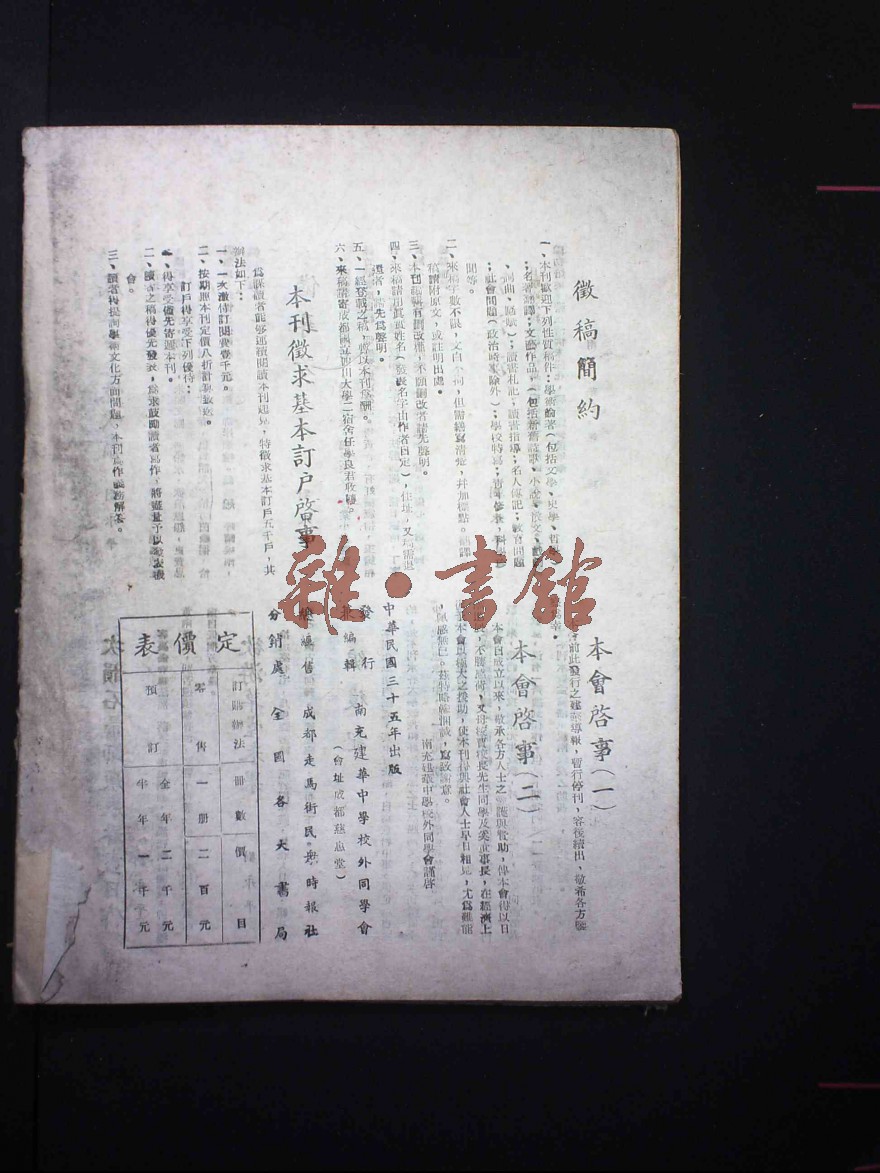 徵稿簡約
一、本刊歡迎下列性質稿件：學術論著（包括文學、史學、哲
；名著翻譯；文藝作品，（包括新舊詩歌、小說、散文、戲劇
、詞曲、駢賦）；讀書札記；讀書指導；名人傳記；教育問題
；社會問題（政治時事除外）；學校特寫；青年修養，科學
聞等。
二、來稿字數不限，文白不拘，但需繕寫清楚，并加標點。翻譯
稿請附原文，或註明出處。
三、本刊編輯有刪改權，不願刪改者請先聲明。
四、來稿請用真實姓名（發表名字由作者自定），住址，又稿需退
還者，請先爲聲明。
五、一經登載之稿，暫以本刊爲酬。
六、來稿請寄成都國立四川大學二宿舍任學良君收轉。
本刊徵求基本訂戶啓事
爲使讀者能够連續閱讀本刊起見，特徵求基本訂戶五千戶，其
辦法如下：
一、一次繳付訂閱費壹千元。
二、按期照本刊定價八折計算遞送。
訂戶得享受下列優待：
一、得享受儘先寄遞本刊。
二、讀者之稿得優先發表，除求鼓勵讀者寫作，將盡量予以發表機
會。
三、讀者得提詢學術文化方面問題，本刊爲作義務解答。
本會啓事（一）
前此發行之建華導報，暫行停刊，容後續出，敬希各方鑒
本會啓事（二）
本會自成立以來，敬承各方人士之愛護與贊助，俾本會得以日
不勝感荷，又母校賈校長先生同學及奚董事長，在經濟上
本會以極大之援助，使本刊得與社會人士早日相見，尤爲難能
感無已。茲特略綴悃誠，爲致謝意。
南充建華中學校外同學會謹啓
中華民國三十五年出版
發行
編輯
南充建華中學校外同學會
（會址成都慈惠堂）
總寫售 成都走馬街民衆時報社
分銷處 全國各大書局
定價表
訂購辦法 冊數 價目
零售 一册 二百元
預訂 全年 二千元
半年 一千元
雜·書館